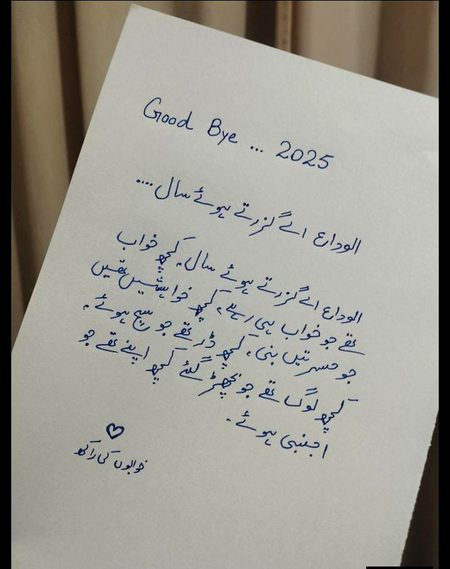 Good Bye ... 2025
الوداع اے گزرتے ہوئے سال ....
الوداع اے گزرتے ہوئے سال۔ کچھ خواب
تھے جو خواب ہی رہے، کچھ خواہشیں تھیں
جو حسرتیں بنی، کچھ ڈر تھے جو سچ ہوئے۔
کچھ لوگ تھے جو بچھڑ گئے کچھ اپنے تھے جو
اجنبی ہوئے۔
خوابوں کی راکھ